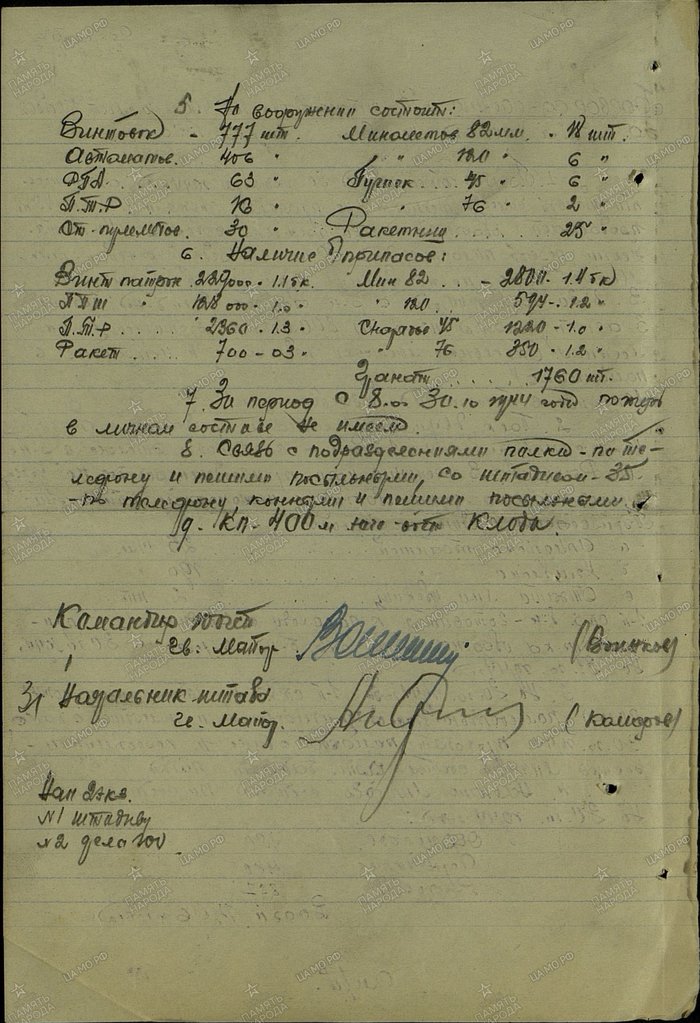 5. На вооружении состоит:
Винтовок - 777 шт. Минометов 82 мм. - 18 шт.
Автоматов. 406 " " 120 " 6 "
РПД . . . . 63 " Пушек . . . 45 " 6 "
П.Т.Р . . . . 16 " " 76 " 2 "
Ст. пулеметов. 30 " Ракетниц . . . . . 25 "
6. Наличие б/припасов:
Винт патрон. 239000 - 1.1 бк. Мин 82 . . . - 2800 - 1.4 бк
ППШ " 128000 - 1.0 " " 120 . . . 594 - 1.2 "
П.Т.Р . . . . 2360 - 1.3 " Снарядов 45 1220 - 1.0 "
Ракет . . . . 700 - 03 " " 76 350 - 1.2 "
Гранат . . . . . . 1760 шт.
7. За период с 8.00 30.10 потерь
в личном составе не имеем.
8. Связь с подразделениями полка - по те-
лефону и пешими посыльными, со штадивом - 35
- по телефону, конными и пешими посыльными.
9. КП - 400 м
Командир
Гв. Майор
Начальник штаба
Гв. Майор.
Нап 2 экз.
№1 штадиву
№2 дела
ПАМЯТЬ НАРОДА
ЦАМО.РФ